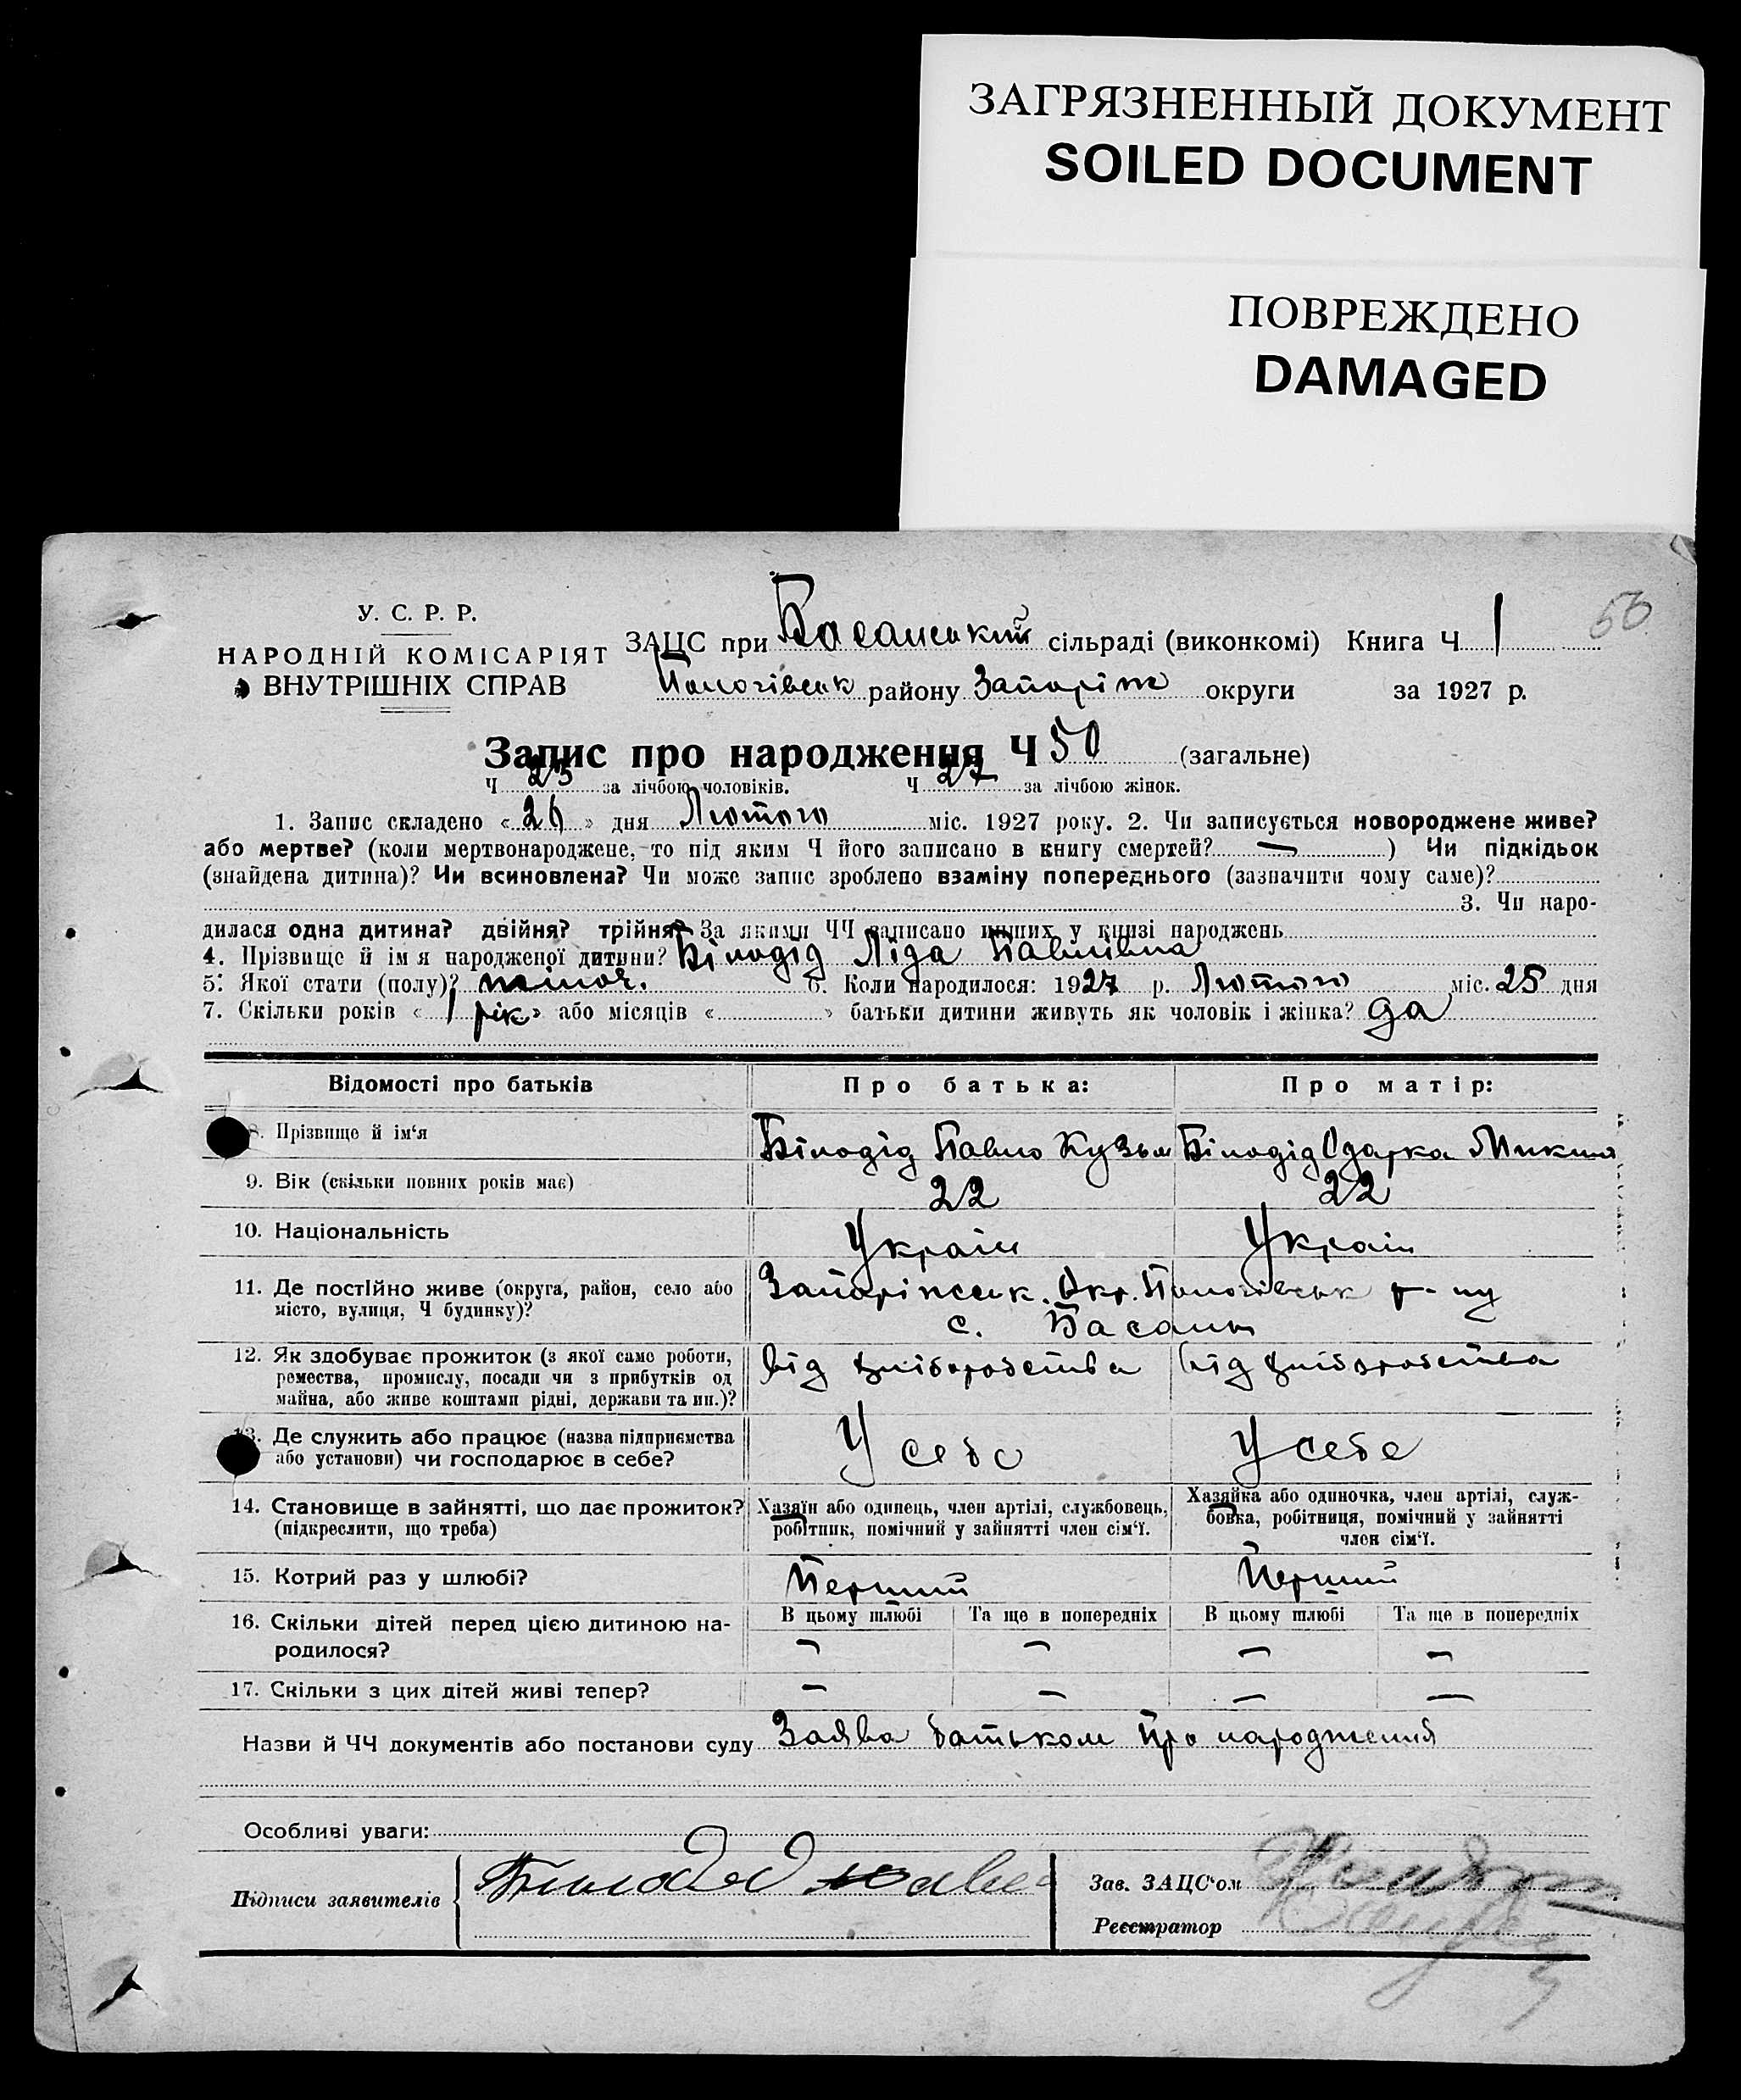 ЗАГРЯЗНЕННЫЙ ДОКУМЕНТ
SOILED DOCUMENT
ПОВРЕЖДЕНО
DAMAGED
50
У. С. Р. Р.
НАРОДНІЙ КОМІСАРІЯТ
ВНУТРІШНІХ СПРАВ
ЗАЦС при Басанський сільраді (виконкомі) Книга Ч 1
Пологівськ району Запоріж округи за 1927 р.
Запис про народження Ч 50 (загальне)
Ч 23 за лічбою чоловіків. Ч 27 за лічбою жінок.
1. Запис складено « 26 » дня Лютого міс. 1927 року. 2. Чи записується новороджене живе?
або мертве? (коли мертвонароджене, то під яким Ч його записано в книгу смертей? — ) Чи підкідьок
(знайдена дитина)? Чи всиновлена? Чи може запис зроблено взаміну попереднього (зазначити чому саме)?
3. Чи наро-
дилася одна дитина? двійня? трійня? За якими ЧЧ записано инших у книзі народжень
4. Прізвище й ім я народженої дитини? Білодід Ліда Павлівна
5. Якої стати (полу)? жіноч. 6. Коли народилося: 1927 р. Лютого міс. 25 дня
7. Скільки років « 1 рік » або місяців « » батьки дитини живуть як чоловік і жінка? да
Відомості про батьків Про батька: Про матір:
8. Прізвище й ім‘я Білодід Павло Кузьм Білодід Одарка Микит
9. Вік (скільки повних років має) 22 22
10. Національність Україн Україн
11. Де постійно живе (округа, район, село або Запоріжськ. Окр. Пологівськ р-ну
місто, вулиця, Ч будинку)? с. Басань
12. Як здобуває прожиток (з якої саме роботи, від хліборобства від хліборобства
ремества, промислу, посади чи з прибутків од
майна, або живе коштами рідні, держави та ин.)?
13. Де служить або працює (назва підприємства У себе У себе
або установи) чи господарює в себе?
14. Становище в зайнятті, що дає прожиток? Хазяїн або одинець, член артілі, службовець, Хазяйка або одиночка, член артілі, служ-
(підкреслити, що треба) робітник, помічний у зайнятті член сім‘ї. бовка, робітниця, помічний у зайнятті
член сім‘ї.
15. Котрий раз у шлюбі? Перший Перший
16. Скільки дітей перед цією дитиною на- В цьому шлюбі Та ще в попередніх В цьому шлюбі Та ще в попередніх
родилося? — — — —
17. Скільки з цих дітей живі тепер? — — — —
Назви й ЧЧ документів або постанови суду Заява батьком про народження
Особливі уваги:
Підписи заявителів Зав. ЗАЦС‘ом
Реєстратор